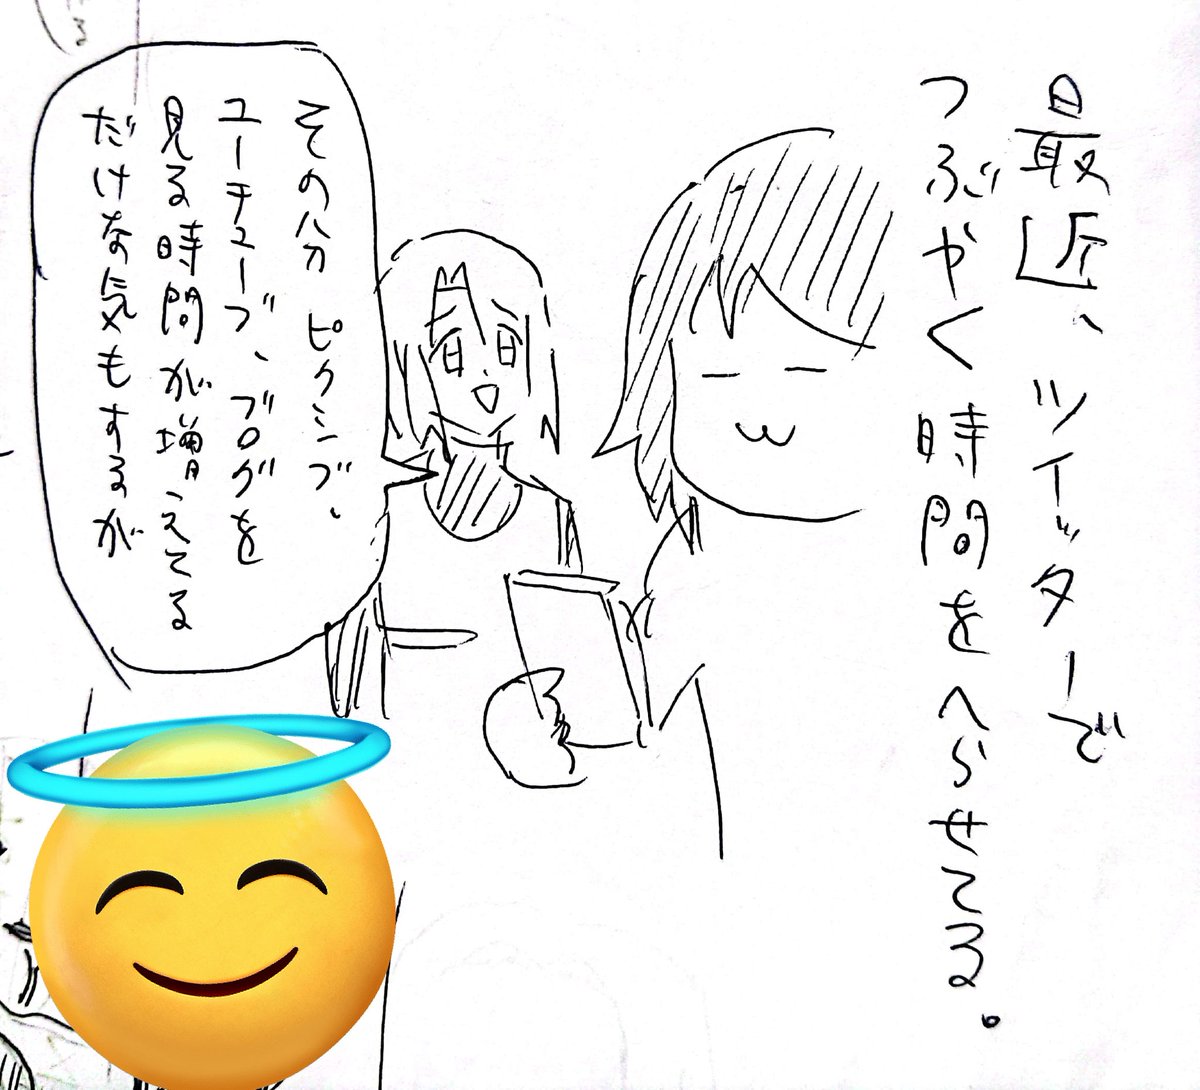 最近、ツイッターで
つぶやく時間をへらせてる。
その分ピクシブ、
ユーチューブ、ブログを
見る時間が増えてる
だけな気もするが